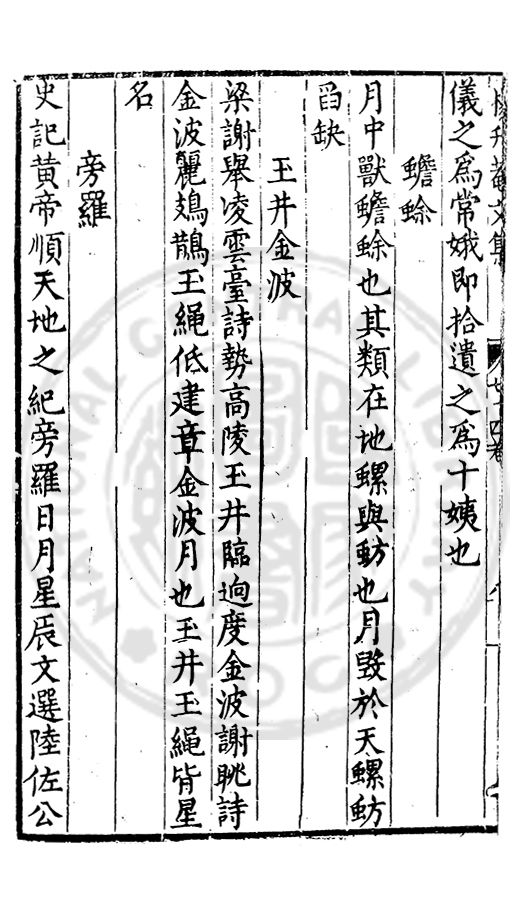 楊升菴文集 七十四卷
儀之爲常娥即拾遺之爲十姨也
蟾蜍
月中獸蟾蜍也其類在地螺與蚄也月毀於天螺蚄
舀缺
玉井金波
梁謝舉凌雲臺詩勢高陵玉井臨逈度金波謝眺詩
金波麗鳷鵲玉繩低建章金波月也玉井玉繩皆星
名
旁羅
史記黃帝順天地之紀旁羅日月星辰文選陸佐公